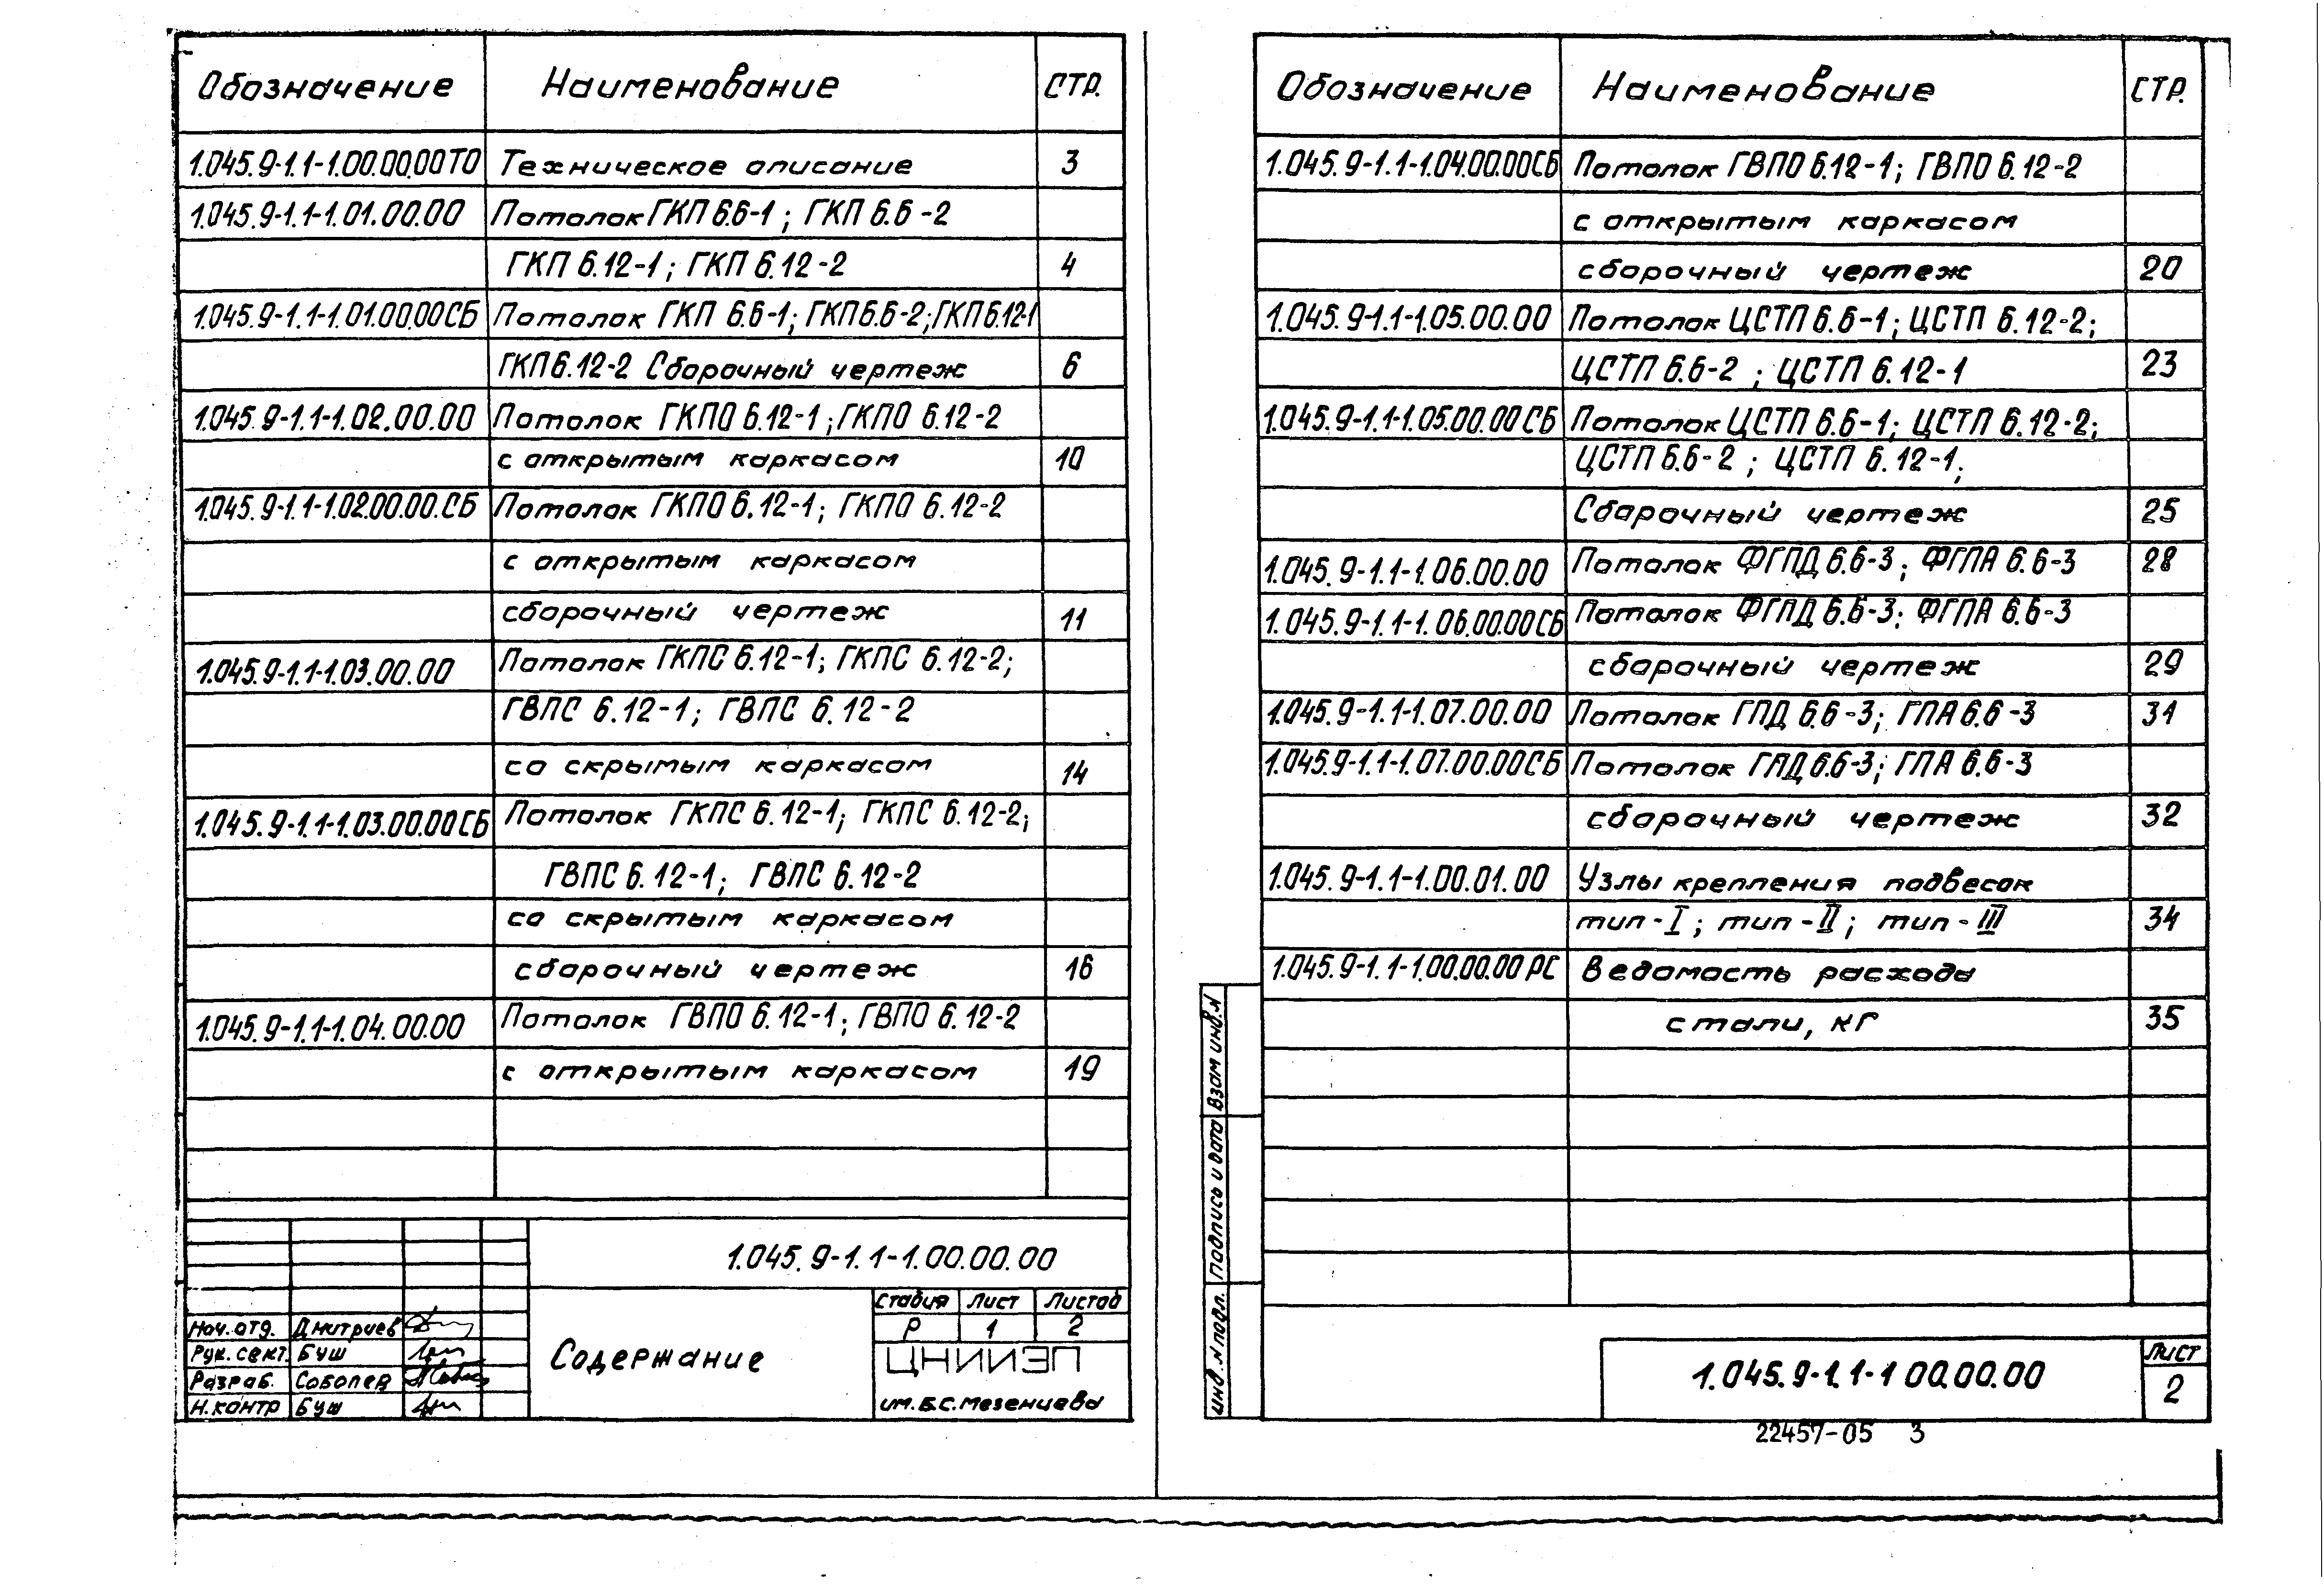 Обозначение Наименование СТР.
1.045.9-1.1-1.00.00.00ТО Техническое описание 3
1.045.9-1.1-1.01.00.00 Потолок ГКП 6.6-1; ГКП 6.6-2
ГКП 6.12-1; ГКП 6.12-2 4
1.045.9-1.1-1.01.00.00СБ Потолок ГКП 6.6-1; ГКП6.6-2; ГКП6.12-1
ГКП6.12-2 Сборочный чертеж 6
1.045.9-1.1-1.02.00.00 Потолок ГКПО 6.12-1; ГКПО 6.12-2
с открытым каркасом 10
1.045.9-1.1-1.02.00.00.СБ Потолок ГКПО 6.12-1; ГКПО 6.12-2
с открытым каркасом
сборочный чертеж 11
1.045.9-1.1-1.03.00.00 Потолок ГКПС 6.12-1; ГКПС 6.12-2;
ГВПС 6.12-1; ГВПС 6.12-2
со скрытым каркасом 14
1.045.9-1.1-1.03.00.00СБ Потолок ГКПС 6.12-1; ГКПС 6.12-2;
ГВПС 6.12-1; ГВПС 6.12-2
со скрытым каркасом
сборочный чертеж 16
1.045.9-1.1-1.04.00.00 Потолок ГВПО 6.12-1; ГВПО 6.12-2
с открытым каркасом 19
1.045.9-1.1-1.00.00.00
Содержание
Стадия Лист Листов
Р 1 2
ЦНИИЭП
им. Б.С. Мезенцева
Нач. отд. Дмитриев
Рук. сект. Буш
Разраб. Соболев
Н. контр Буш
Обозначение Наименование СТР.
1.045.9-1.1-1.04.00.00СБ Потолок ГВПО 6.12-1; ГВПО 6.12-2
с открытым каркасом
сборочный чертеж 20
1.045.9-1.1-1.05.00.00 Потолок ЦСТП 6.6-1; ЦСТП 6.12-2;
ЦСТП 6.6-2; ЦСТП 6.12-1 23
1.045.9-1.1-1.05.00.00СБ Потолок ЦСТП 6.6-1; ЦСТП 6.12-2;
ЦСТП 6.6-2; ЦСТП 6.12-1;
Сборочный чертеж 25
1.045.9-1.1-1.06.00.00 Потолок ФГПД 6.6-3; ФГПА 6.6-3 28
1.045.9-1.1-1.06.00.00СБ Потолок ФГПД 6.6-3; ФГПА 6.6-3
сборочный чертеж 29
1.045.9-1.1-1.07.00.00 Потолок ГПД 6.6-3; ГПА 6.6-3 31
1.045.9-1.1-1.07.00.00СБ Потолок ГПД 6.6-3; ГПА 6.6-3
сборочный чертеж 32
1.045.9-1.1-1.00.01.00 Узлы крепления подвесок
тип-I; тип-II; тип-III 34
1.045.9-1.1-1.00.00.00 РС Ведомость расхода
стали, кг 35
Взам инв. N
Подпись и дата
инв. N подл.
1.045.9-1.1-1 00.00.00
Лист
2
22457-05 3